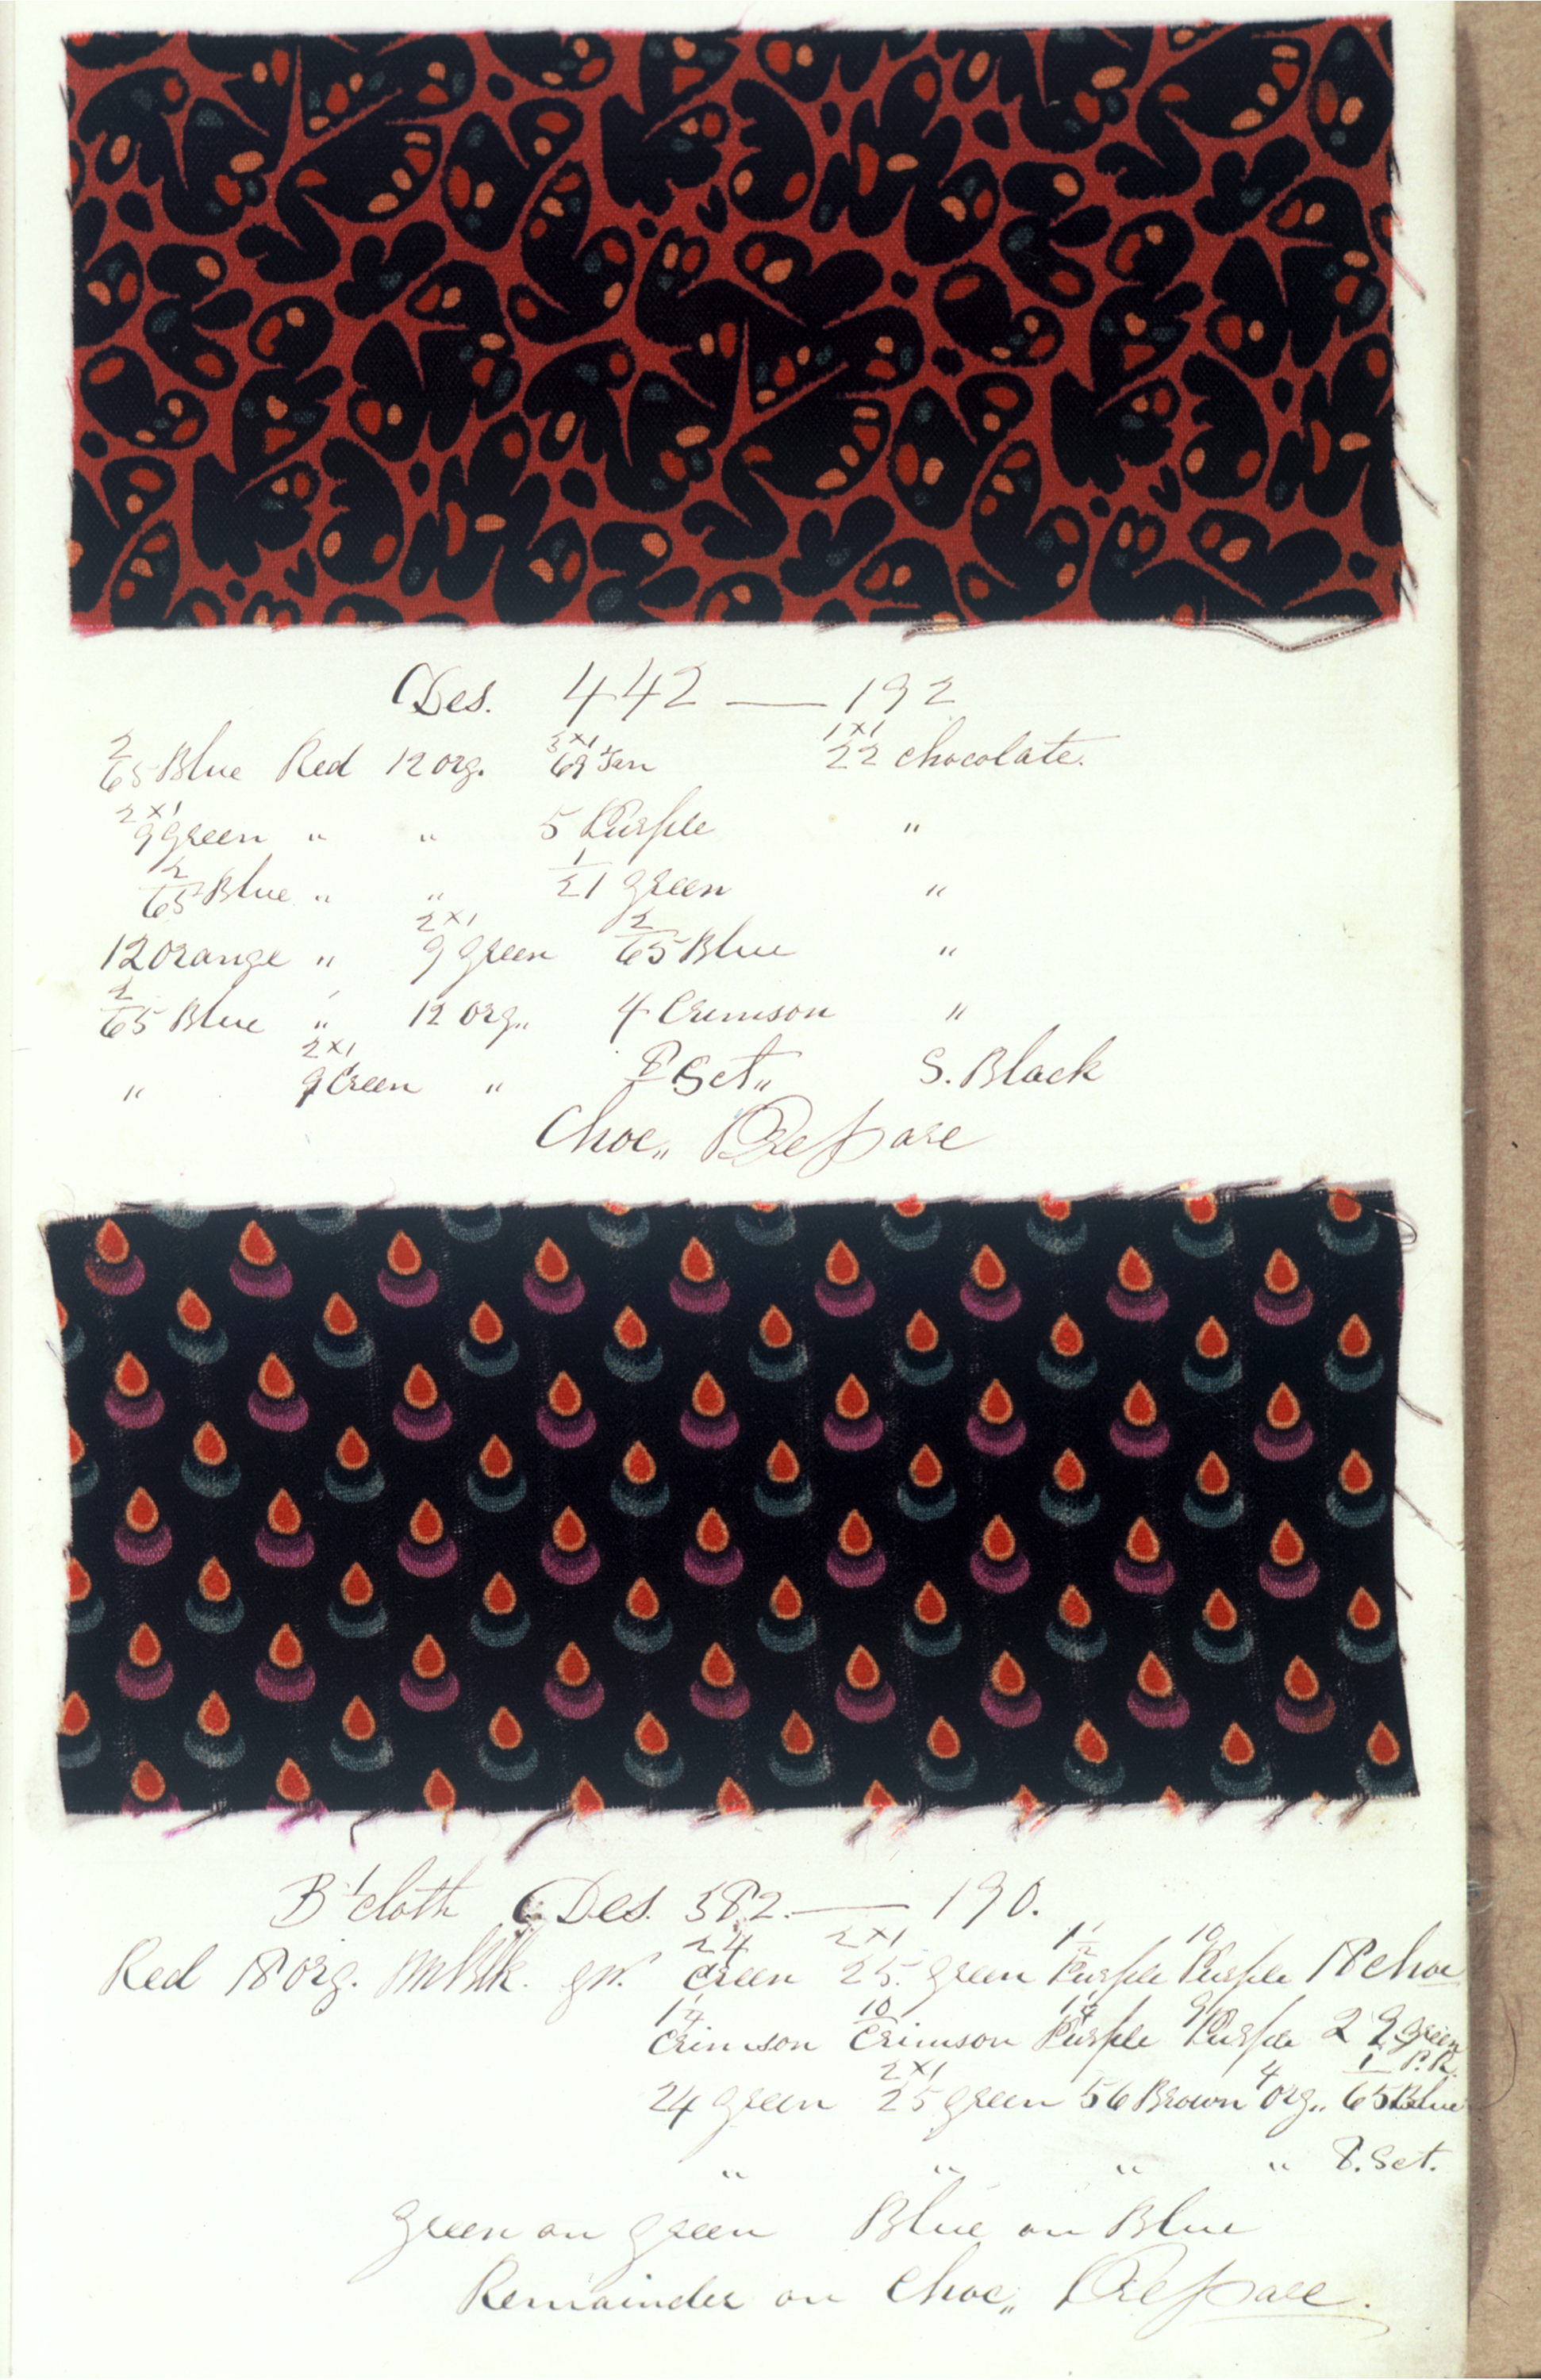 Des. 442 — 192
2/65 Blue Red 12 org. 3x1 69 Ten 1x1 22 chocolate.
2x1 9 green " " 5 Purple "
2/65 Blue " " 1/21 green "
12 orange " 2x1 9 green 2/65 Blue "
2/65 Blue " 12 org,, 4 Crimson "
" 2x1 9 Green " 8 Set,, S. Black
Choc,, Prepare
B'cloth Des. 382. — 190.
Red 18 org. Blk. 24 Green 2x1 25. green Purple 10 Purple 18 choc
14 Crimson 10 Crimson 14 Purple 9 Purple 29 green
24 green 2x1 25 green 56 Brown 4 org,, 1 P.R. 65 Blue
" " " " 8. Set.
Green on green Blue on Blue
Remainder on Choc,, Prepare.